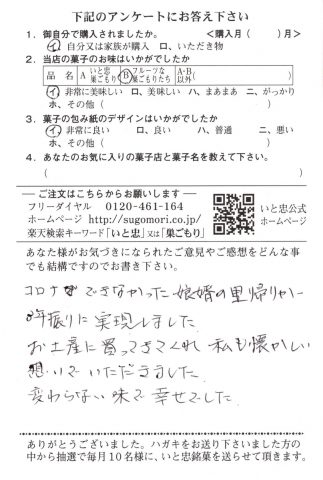 下記のアンケートにお答え下さい
1．御自分で購入されましたか。 ＜購入月（ ）月＞
イ、自分又は家族が購入 ロ、いただき物
2．当店の菓子のお味はいかがでしたか
品 名 A いと忠巣ごもり B フルーツな巣ごもりたち A・B以外（ ）
イ、非常に美味しい ロ、美味しい ハ、まあまあ ニ、がっかり
ホ、その他（ ）
3．菓子の包み紙のデザインはいかがでしたか
イ、非常に良い ロ、良い ハ、普通 ニ、悪い
ホ、その他（ ）
4．あなたのお気に入りの菓子店と菓子名を教えて下さい。
（ ）
ご注文はこちらからお願いします
フリーダイヤル 0120-461-164
ホームページ http://sugomori.co.jp/
楽天検索キーワード「いと忠」又は「巣ごもり」
いと忠公式
ホームページ
あなた様がお気づきになられたご意見やご感想をどんな事
でも結構ですのでお書き下さい。
コロナで できなかった 娘婿の里帰りが
年振りに 実現しました
お土産に 買ってきてくれ 私も懐かしい
想いで いただきました
変わらない 味で 幸せでした。
ありがとうございました。ハガキをお送り下さいました方の
中から抽選で毎月10名様に、いと忠銘菓を送らせて頂きます。